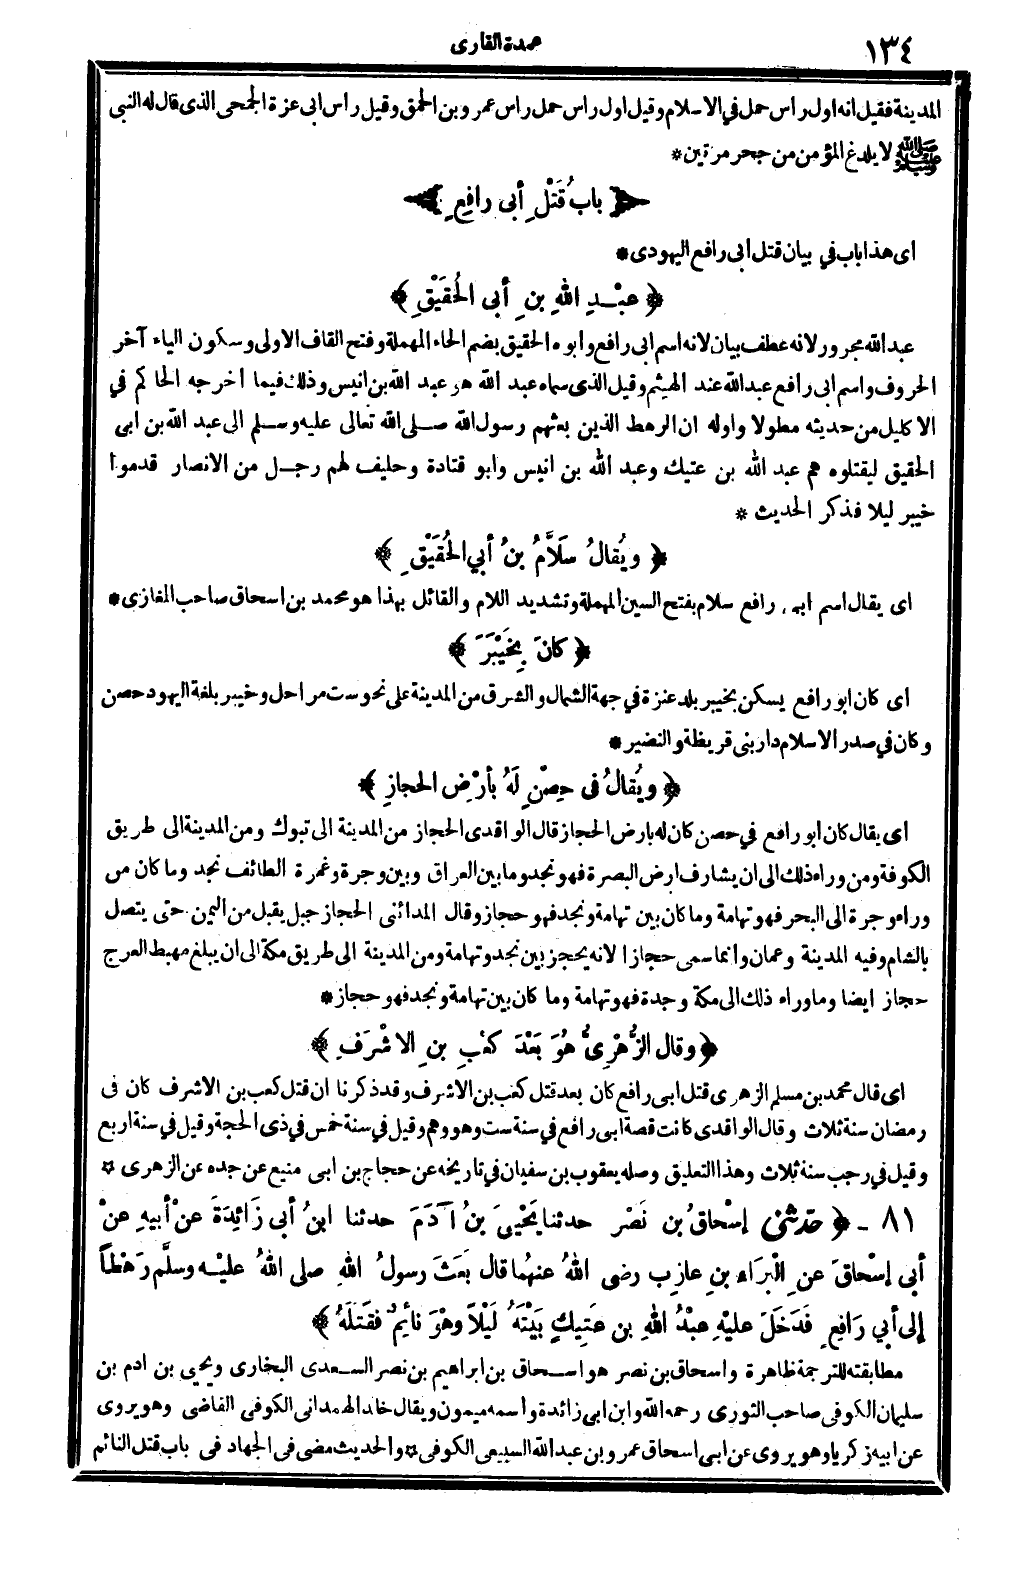 ١٣٤
عمدة القارى
المدينة فقيل انه اول راس حمل في الاسلام وقيل اول راس حمل راس عمرو بن الحمق وقيل راس ابى عزة الجمحى الذى قال له النبى
ﷺ لا يلدغ المؤمن من جحر مرتين *
﴿ بابُ قَتْلِ أبى رافِعٍ ﴾
اى هذا باب في بيان قتل ابى رافع اليهودى *
﴿ عبْدِ اللهِ بنِ أبى الحُقَيْقِ ﴾
عبد الله مجرور لانه عطف بيان لانه اسم ابى رافع وابوه الحقيق بضم الحاء المهملة وفتح القاف الاولى وسكون الياء آخر
الحروف واسم ابى رافع عبد الله عند الهيثم وقيل الذى سماه عبد الله هو عبد الله بن انيس وذلك فيما اخرجه الحاكم في
الاكليل من حديثه مطولا واوله ان الرهط الذين بعثهم رسول الله صلى الله تعالى عليه وسلم الى عبد الله بن ابى
الحقيق ليقتلوه هم عبد الله بن عتيك وعبد الله بن انيس وابو قتادة وحليف لهم رجل من الانصار قدموا
خيبر ليلا فذكر الحديث *
﴿ ويُقالُ سَلاَّمُ بنُ أبي الحُقَيْقِ ﴾
اى يقال اسم ابى رافع سلام بفتح السين المهملة وتشديد اللام والقائل بهذا هو محمد بن اسحاق صاحب المغازى *
﴿ كانَ بِخَيْبَرَ ﴾
اى كان ابو رافع يسكن بخيبر بلد عنزة في جهة الشمال والشرق من المدينة على نحو ست مراحل وخيبر بلغة اليهود حصن
وكان في صدر الاسلام دار بنى قريظة والنضير *
﴿ ويُقالُ فى حِصْنٍ لَهُ بأرْضِ الحجازِ ﴾
اى يقال كان ابو رافع في حصن كان له بارض الحجاز قال الواقدى الحجاز من المدينة الى تبوك ومن المدينة الى طريق
الكوفة ومن وراء ذلك الى ان يشارف ارض البصرة فهو نجد وما بين العراق وبين وجرة وغمرة الطائف نجد وما كان من
وراء وجرة الى البحر فهو تهامة وما كان بين تهامة ونجد فهو حجاز وقال المدائنى الحجاز جبل يقبل من اليمن حتى يتصل
بالشام وفيه المدينة وعمان وانما سمى حجازا لانه يحجز بين نجد وتهامة ومن المدينة الى طريق مكة الى ان يبلغ مهبط العرج
حجاز ايضا وماوراء ذلك الى مكة وجدة فهو تهامة وما كان بين تهامة ونجد فهو حجاز *
﴿ وقال الزُّهْرِىُّ هُوَ بَعْدَ كعْبِ بنِ الاشْرَفِ ﴾
اى قال محمد بن مسلم الزهرى قتل ابى رافع كان بعد قتل كعب بن الاشرف وقد ذكرنا ان قتل كعب بن الاشرف كان فى
رمضان سنة ثلاث وقال الواقدى كانت قصة ابى رافع في سنة ست وهو وهم وقيل في سنة خمس في ذى الحجة وقيل في سنة اربع
وقيل في رجب سنة ثلاث وهذا التعليق وصله يعقوب بن سفيان في تاريخه عن حجاج بن ابى منيع عن جده عن الزهرى *
٨١ - ﴿ حدثنى إسْحاقُ بن نَصْرٍ حدثنا يَحْيَى بنُ آدَمَ حدثنا ابنُ أبي زَائِدَةَ عنْ أبيهِ عنْ
أبي إسْحاقَ عنِ البَرَاءِ بنِ عازِبٍ رضى اللهُ عنهُما قال بَعَثَ رسولُ اللهِ صلى اللهُ عليْهِ وسلَّم رَهْطاً
إلى أبي رَافِعٍ فَدَخَلَ عليْهِ عبْدُ اللهِ بن عَتِيكٍ بَيْتَهُ لَيْلاً وهْوَ نائِمٌ فقَتلَهُ ﴾
مطابقته للترجمة ظاهرة واسحاق بن نصر هو اسحاق بن ابراهيم بن نصر السعدى البخارى ويحيى بن ادم بن
سليمان الكوفى صاحب الثورى رحمه الله وابن ابى زائدة واسمه ميمون ويقال خالد الهمدانى الكوفى القاضى وهو يروى
عن ابيه زكريا وهو يروى عن ابى اسحاق عمرو بن عبد الله السبيعى الكوفى * والحديث مضى فى الجهاد فى باب قتل النائم